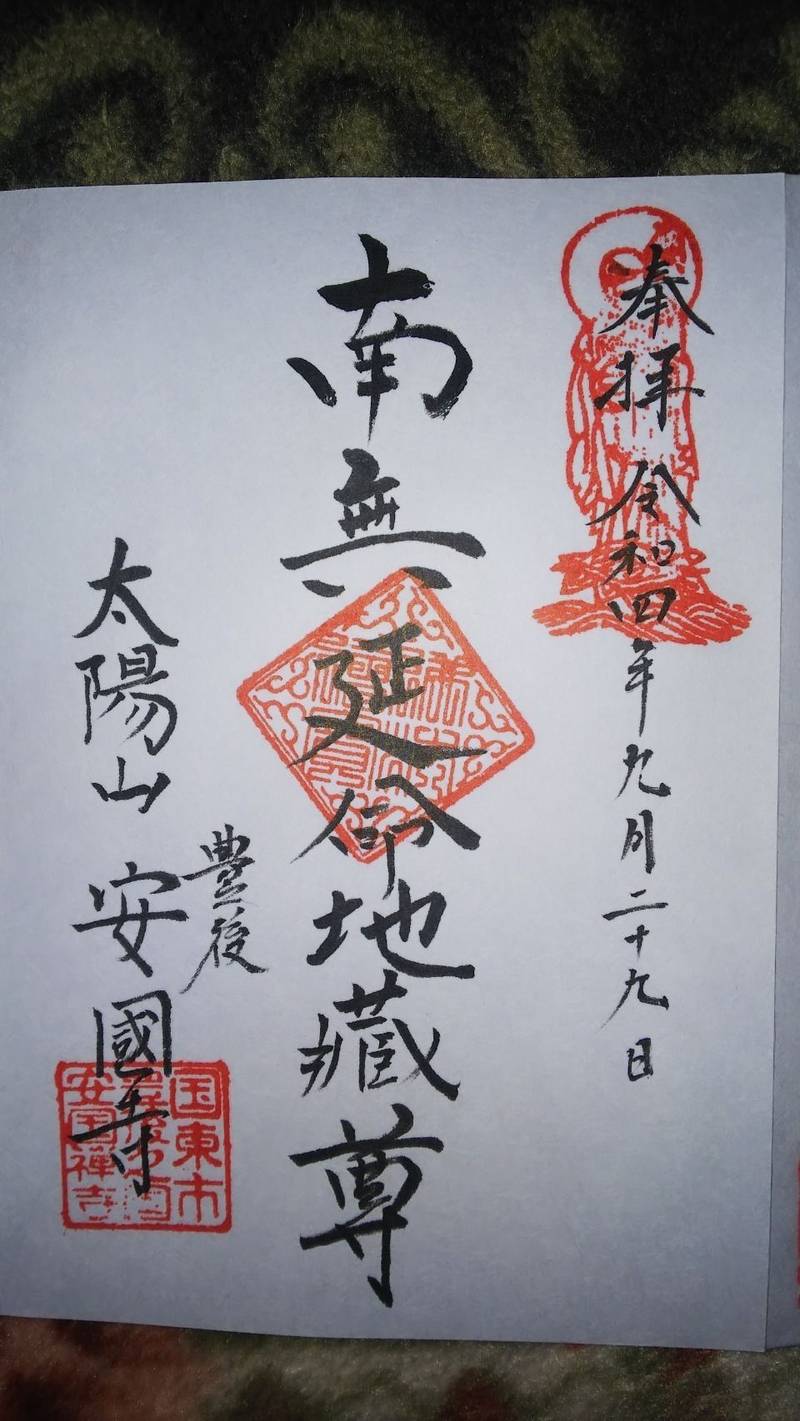 奉拝 令和四年九月二十九日
南無延命地藏尊
豊後
太陽山 安國寺
国東市
安国禅寺